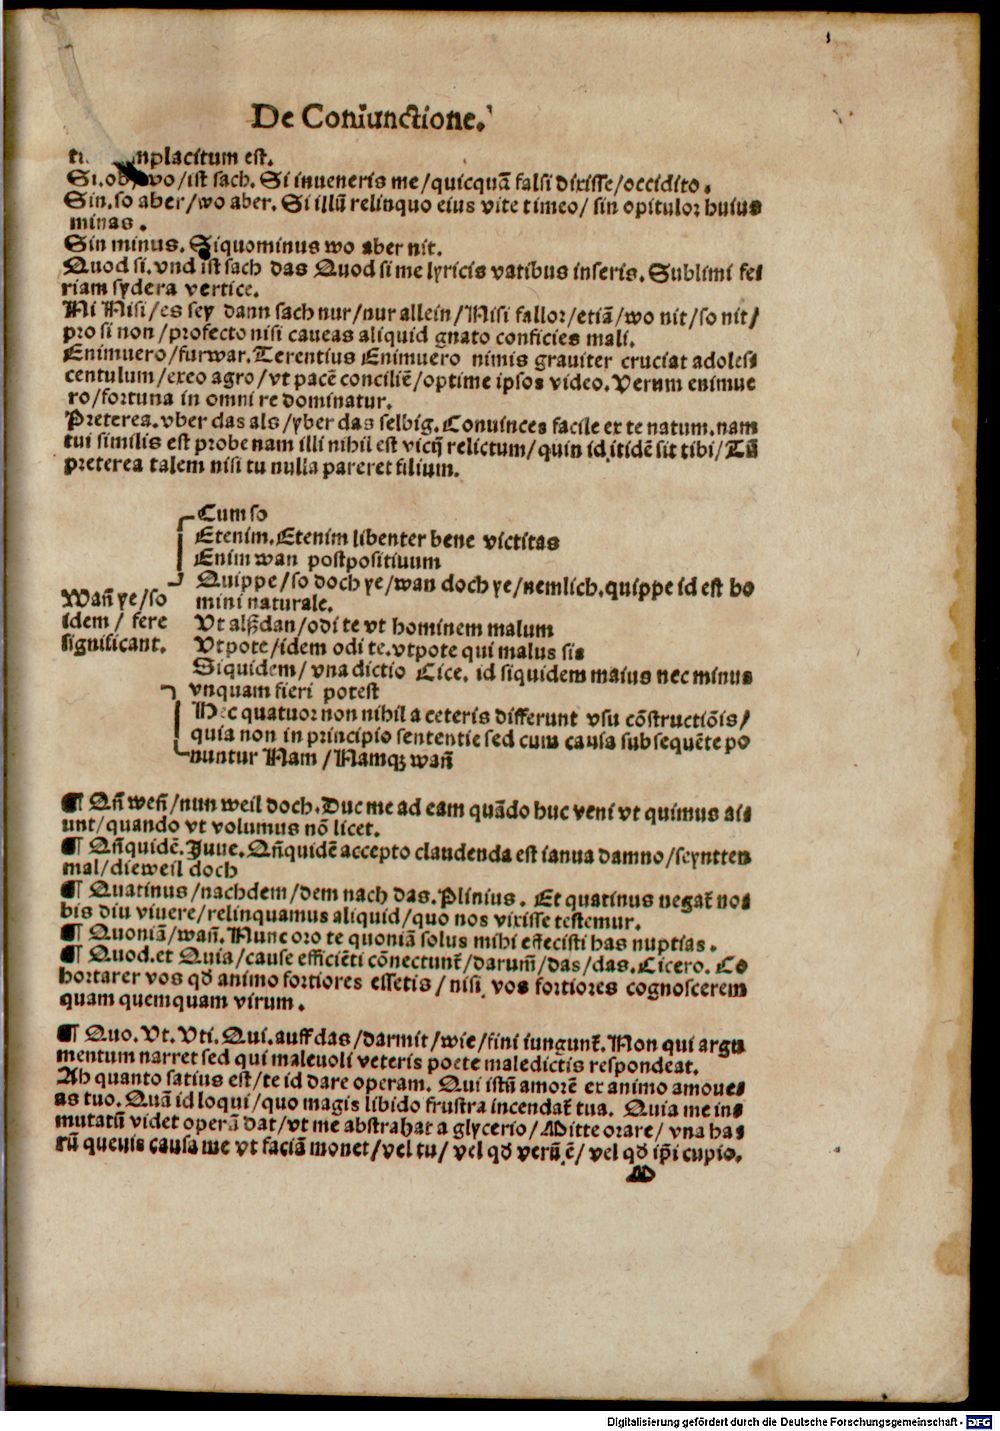 De Coniunctione.
mplacitum est.
Si. ob/wo/ist sach. Si inueneris me/quicquā falsi dixisse/occidito.
Sin. so aber/wo aber. Si illū relinquo eius vite timeo/ sin opitulor huius
minas.
Sin minus. Siquominus wo aber nit.
Quod si. vnd ist sach das Quod si me lyricis vatibus inseris. Sublimi fe⸗
riam sydera vertice.
Ni Nisi/es sey dann sach nur/nur allein/Nisi fallor/etiā/wo nit/so nit/
pro si non/profecto nisi caueas aliquid gnato conficies mali.
Enimuero/furwar. Terentius Enimuero nimis grauiter cruciat adoles⸗
centulum/exeo agro/vt pacē conciliē/optime ipsos video. Verum enimue
ro/fortuna in omni re dominatur.
Preterea. vber das als/yber das selbig. Conuinces facile ex te natum. nam
tui similis est probe nam illi nihil est vicij relictum/quin id itidē sit tibi/Tū
preterea talem nisi tu nulla pareret filium.
Cum so
Etenim. Etenim libenter bene victitas
Enim wan postpositiuum
Quippe/so doch ye/wan doch ye/nemlich. quippe id est ho
mini naturale.
Wan̄ ye/so
idem/ fere
significant.
Vt alßdan/odi te vt hominem malum
Vtpote/idem odi te. vtpote qui malus sis
Siquidem/ vna dictio Cice. id siquidem maius nec minus
vnquam fieri potest
Hec quatuor non nihil a ceteris differunt vsu cōstructiōis/
quia non in principio sententie sed cum causa subsequēte po
nuntur Nam/Namqꝫ wan̄
¶ Qn̄ wen̄/nun weil doch. Duc me ad eam quādo huc veni vt quimus ai⸗
unt/quando vt volumus nō licet.
¶ Qn̄quidē. Juue. Qn̄quidē accepto claudenda est ianua damno/seyntten
mal/dieweil doch
¶ Quatinus/nachdem/dem nach das. Plinius. Et quatinus negat᷑ no⸗
bis diu viuere/relinquamus aliquid/quo nos vixisse testemur.
¶ Quoniā/wan̄. Nunc oro te quoniā solus mihi effecisti has nuptias.
¶ Quod. et Quia/cause efficiēti cōnectunt᷑/darum̄/das/das. Cicero. Co
hortarer vos qđ animo fortiores essetis/nisi vos fortiores cognoscerem
quam quemquam virum.
¶ Quo. Vt. Vti. Qui. auff das/darmit/wie/fini iungunt᷑. Non qui argu
mentum narret sed qui maleuoli veteris poete maledictis respondeat.
Ah quanto satius est/te id dare operam. Qui istū amorē ex animo amoue⸗
as tuo. Quā id loqui/quo magis libido frustra incendat᷑ tua. Quia me in⸗
mutatū videt operā dat/vt me abstrahat a glycerio/Mitte orare/ vna ha⸗
rū queuis causa me vt faciā monet/vel tu/ vel qđ verū ē/ vel qđ ip̄i cupio.
M
Digitalisierung gefördert durch die Deutsche Forschungsgemeinschaft - DFG